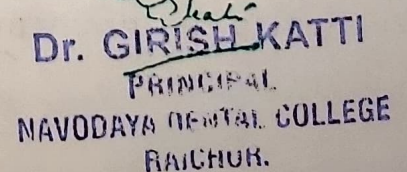 Dr. GIRISH KATTI
PRINCIPAL
NAVODAYA DENTAL COLLEGE
RAICHUR.